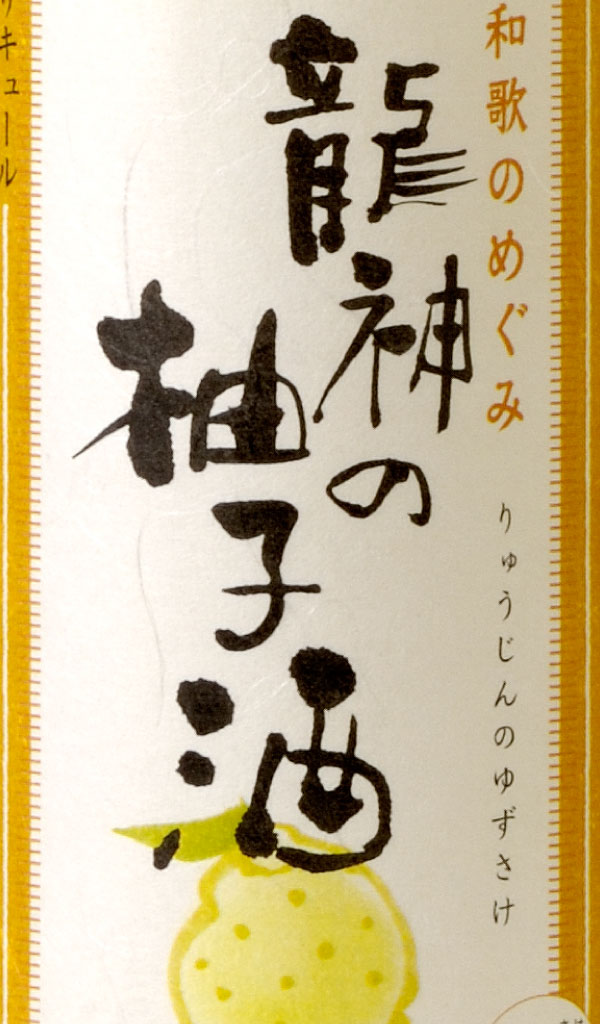 和歌のめぐみ
りゅうじんのゆずさけ
龍神の
柚子酒
リキュール